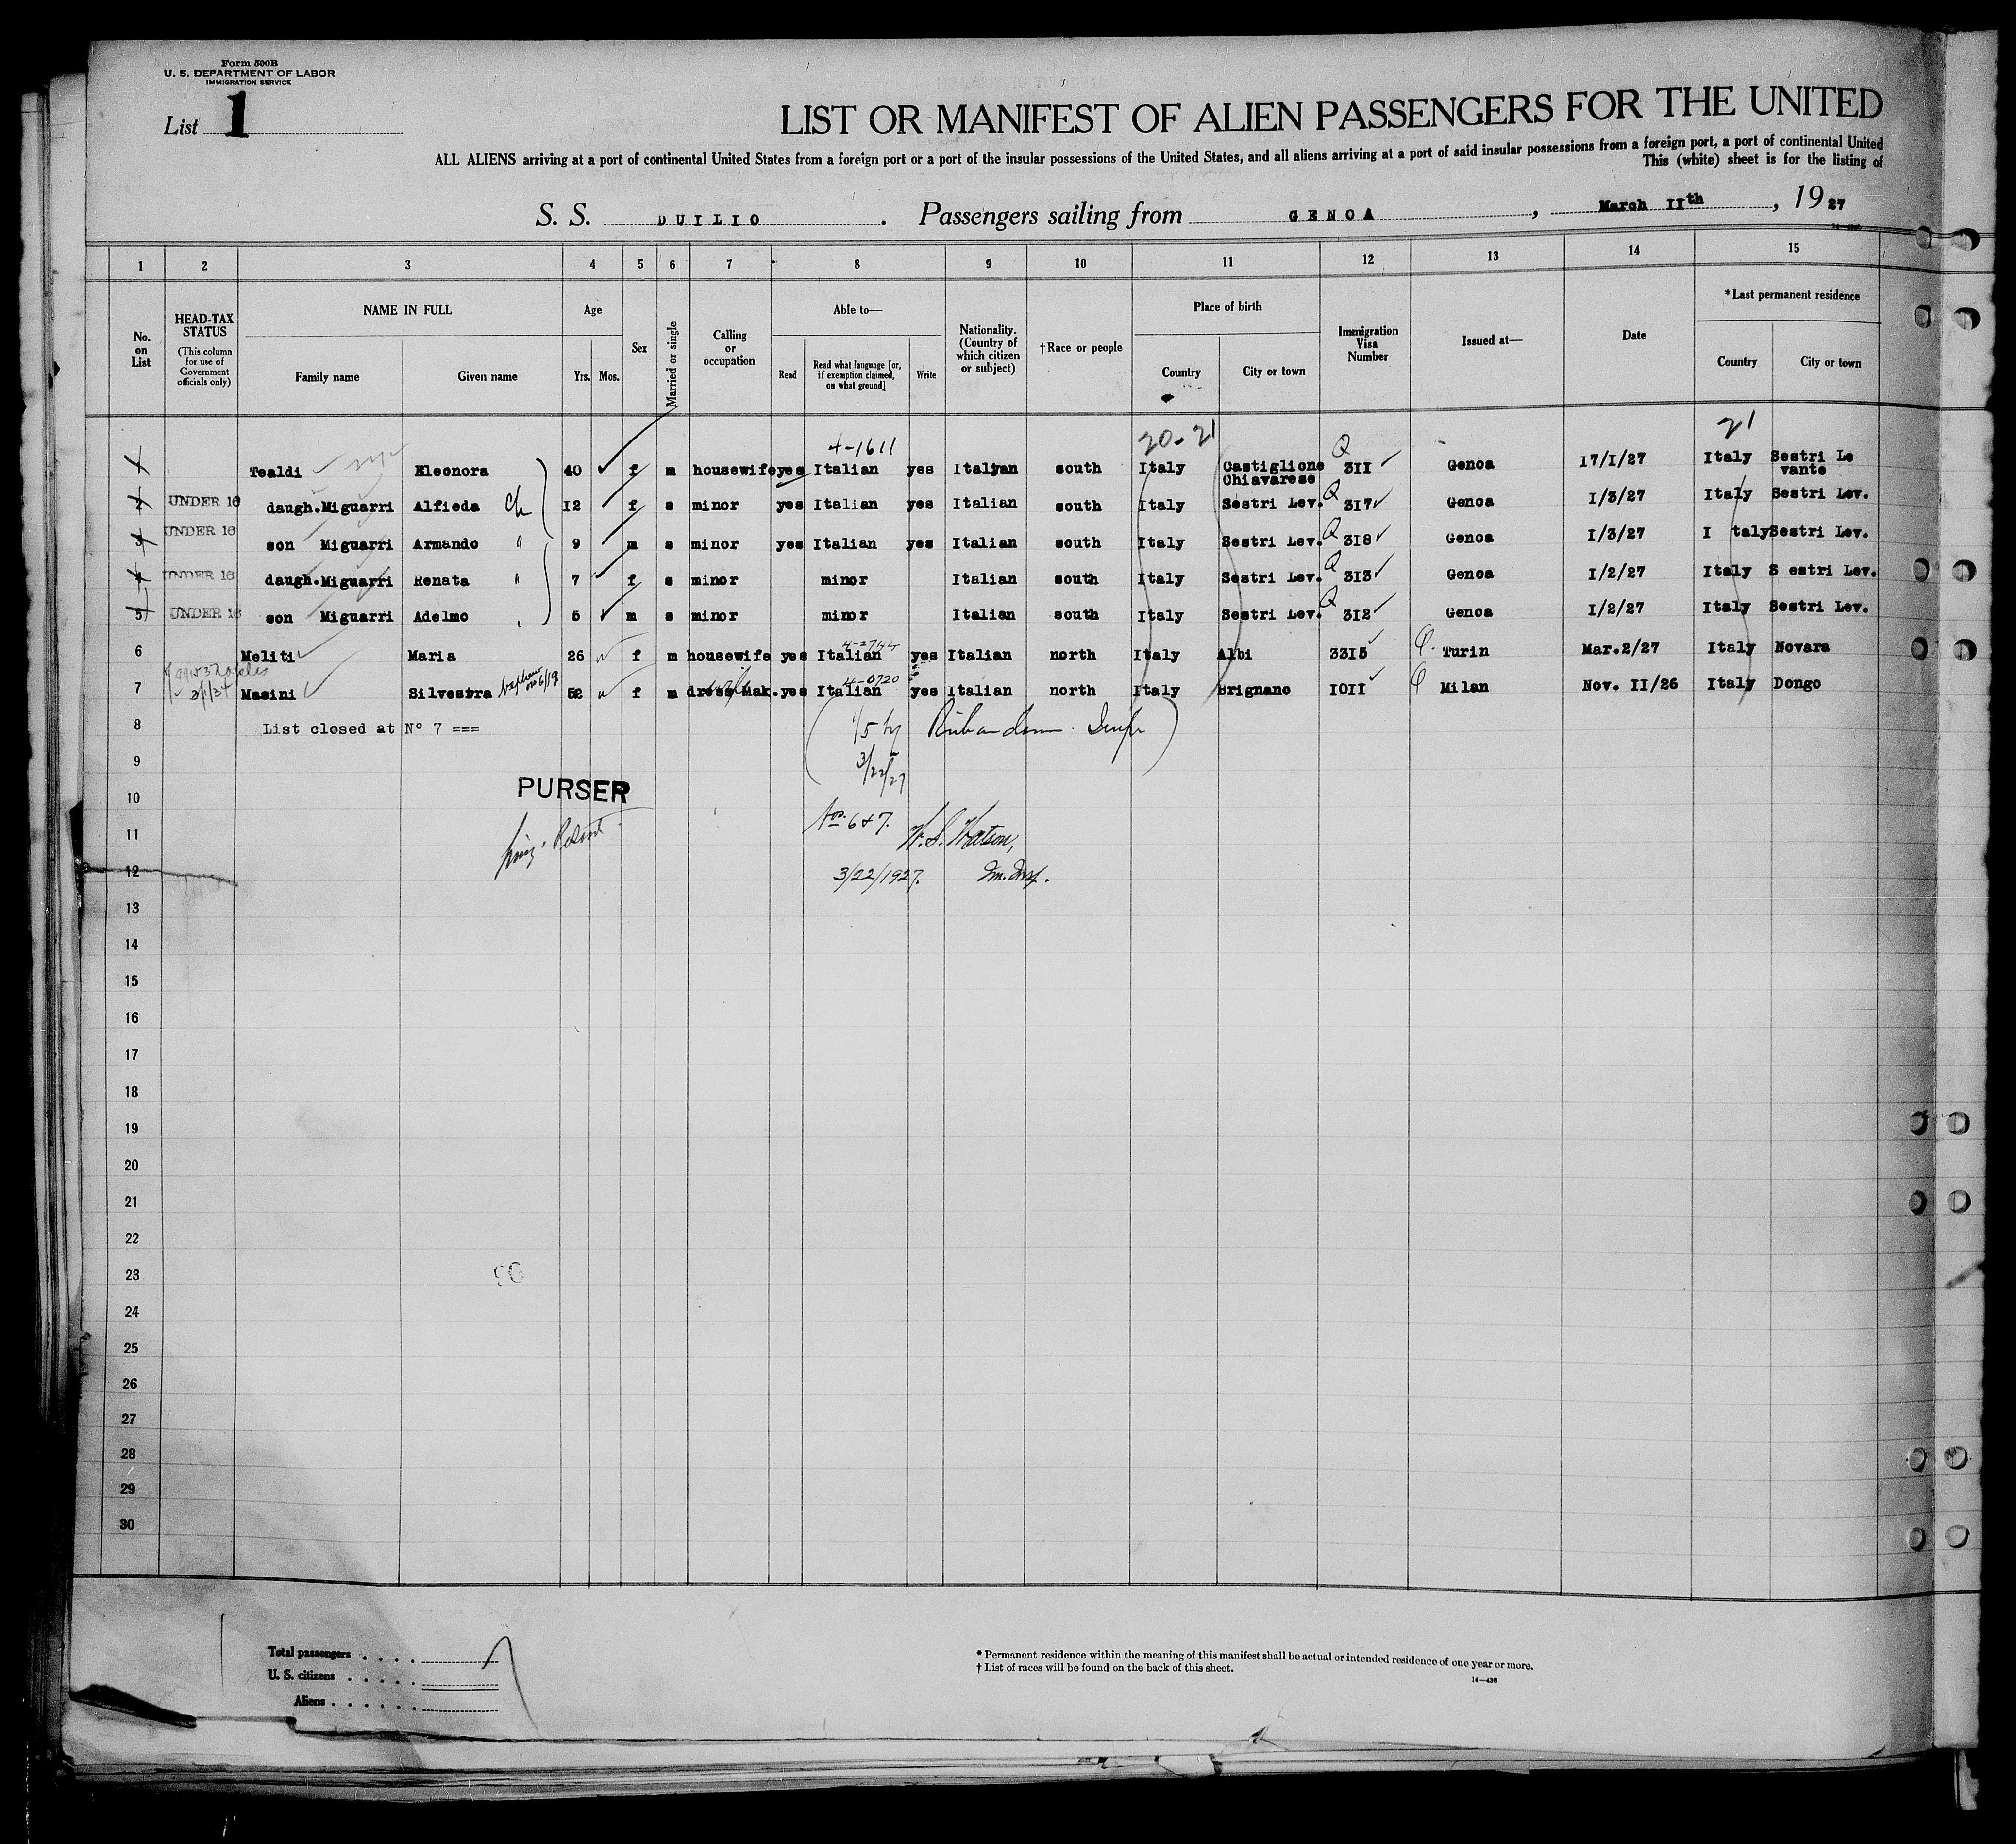 Form 500B
U. S. DEPARTMENT OF LABOR
IMMIGRATION SERVICE
List 1
LIST OR MANIFEST OF ALIEN PASSENGERS FOR THE UNITED
ALL ALIENS arriving at a port of continental United States from a foreign port or a port of the insular possessions of the United States, and all aliens arriving at a port of said insular possessions from a foreign port, a port of continental United
This (white) sheet is for the listing of
S. S. DUILIO. Passengers sailing from GENOA, March IIth, 1927
1 2 3 4 5 6 7 8 9 10 11 12 13 14 15
No. on List
HEAD-TAX STATUS (This column for use of Government officials only)
NAME IN FULL Family name Given name
Age Yrs. Mos.
Sex
Married or single
Calling or occupation
Able to— Read Read what language [or, if exemption claimed, on what ground] Write
Nationality. (Country of which citizen or subject)
†Race or people
Place of birth Country City or town
Immigration Visa Number
Issued at—
Date
*Last permanent residence Country City or town
4-1611 20-21 21
Tealdi Eleonora 40 f m housewife yes Italian yes Italyan south Italy Castiglione Chiavarese Q 3II Genoa I7/I/27 Italy Sestri Le vante
2 UNDER 16 daugh. Miguarri Alfieda ch I2 f s minor yes Italian yes Italian south Italy Sestri Lev. Q 3I7 Genoa I/3/27 Italy Sestri Lev.
3 UNDER 16 son Miguarri Armando " 9 m s minor yes Italian yes Italian south Italy Sestri Lev. Q 3I8 Genoa I/3/27 I taly Sestri Lev.
4 UNDER 16 daugh. Miguarri Renata " 7 f s minor minor Italian south Italy Sestri Lev. Q 3I3 Genoa I/2/27 Italy S estri Lev.
5 UNDER 16 son Miguarri Adelmo 5 m s minor minor Italian south Italy Sestri Lev. Q 3I2 Genoa I/2/27 Italy Sestri Lev.
6 Meliti Maria 26 f m housewife yes Italian 4-2744 yes Italian north Italy Albi 33I5 Q. Turin Mar.2/27 Italy Novara
7 Masini Silvestra 52 f m dress Mak. yes Italian 4-0720 yes Italian north Italy Brignano IOII Q Milan Nov. II/26 Italy Dongo
8 List closed at Nº 7 ===
1/5 by
9
3/22/27
10 PURSER
11
Nos. 6 & 7. W. S. Watson,
12
3/22/1927. Im. Insp.
13
14
15
16
17
18
19
20
21
22
23
24
25
26
27
28
29
30
Total passengers . . . . 7
U. S. citizens . . . . .
Aliens . . . . . .
* Permanent residence within the meaning of this manifest shall be actual or intended residence of one year or more.
† List of races will be found on the back of this sheet.
14—430